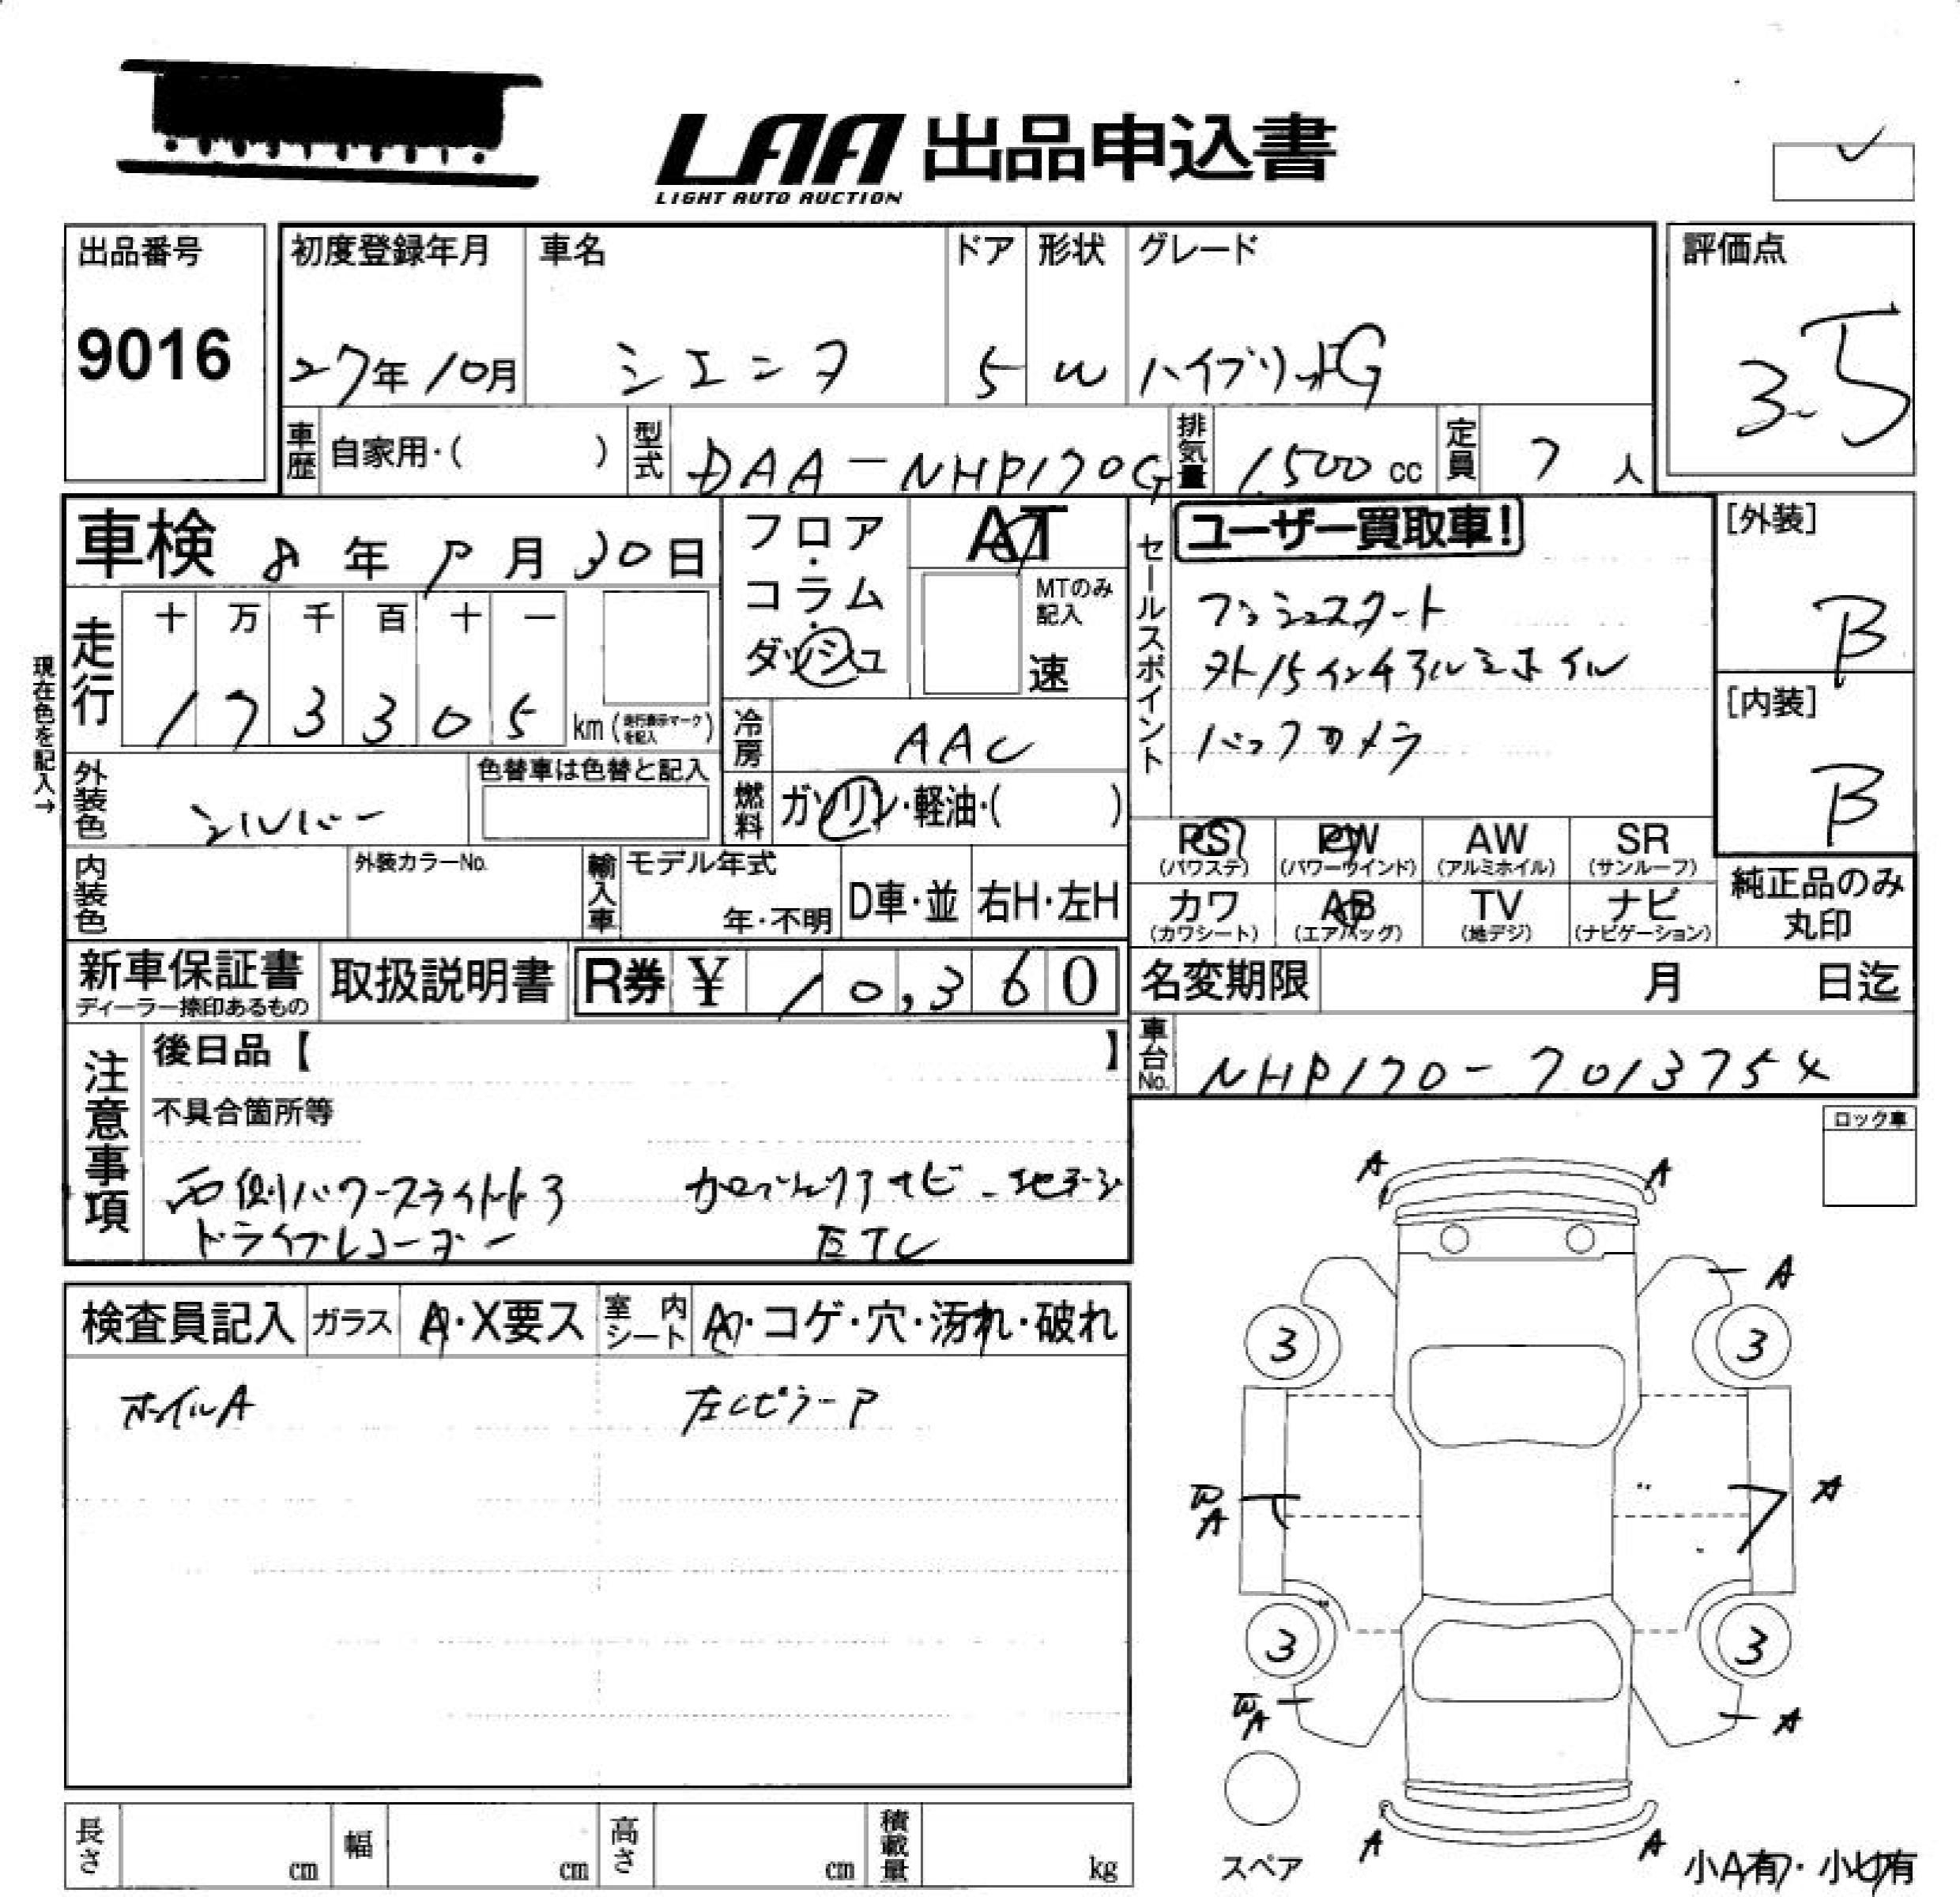 LAA 出品申込書
LIGHT AUTO AUCTION
出品番号
9016
初度登録年月
27年10月
車名
シエンタ
ドア
5
形状
W
グレード
ハイブリッドG
評価点
3.5
車歴 自家用・( )
型式 DAA-NHP170G
排気量 1,500 cc
定員 7 人
車検 8年 月30日
フロア・コラム・ダッシュ
AT
MTのみ記入
速
セールスポイント
ユーザー買取車!
プッシュスタート
外15インチアルミホイル
バックカメラ
[外装]
B
[内装]
B
現在色を記入→
走行
十 万 千 百 十 一
1 7 3 3 0 5 km (走行表示マークを記入)
冷房 AAC
外装色 シルバー
色替車は色替と記入
燃料 ガソリン・軽油・( )
PS (パワステ)
PW (パワーウインド)
AW (アルミホイル)
SR (サンルーフ)
カワ (カワシート)
AB (エアバッグ)
TV (地デジ)
ナビ (ナビゲーション)
純正品のみ丸印
内装色
外装カラーNo.
輸入車
モデル年式
年・不明
D車・並
右H・左H
新車保証書
ディーラー捺印あるもの
取扱説明書
R券 ¥ 10,360
名変期限 月 日迄
車台No. NHP170-7013754
注意事項
後日品【 】
不具合箇所等
右側パワースライドドア カロッツェリアナビ 地デジ
ドライブレコーダー ETC
ロック車
検査員記入
ガラス A・X要ス
室内シート A・コゲ・穴・汚れ・破れ
ホイルA 左Cピラー P
A A
A
3 3
A A
3 3
A A
A A
スペア
小A有・小U有
長さ cm
幅 cm
高さ cm
積載量 kg